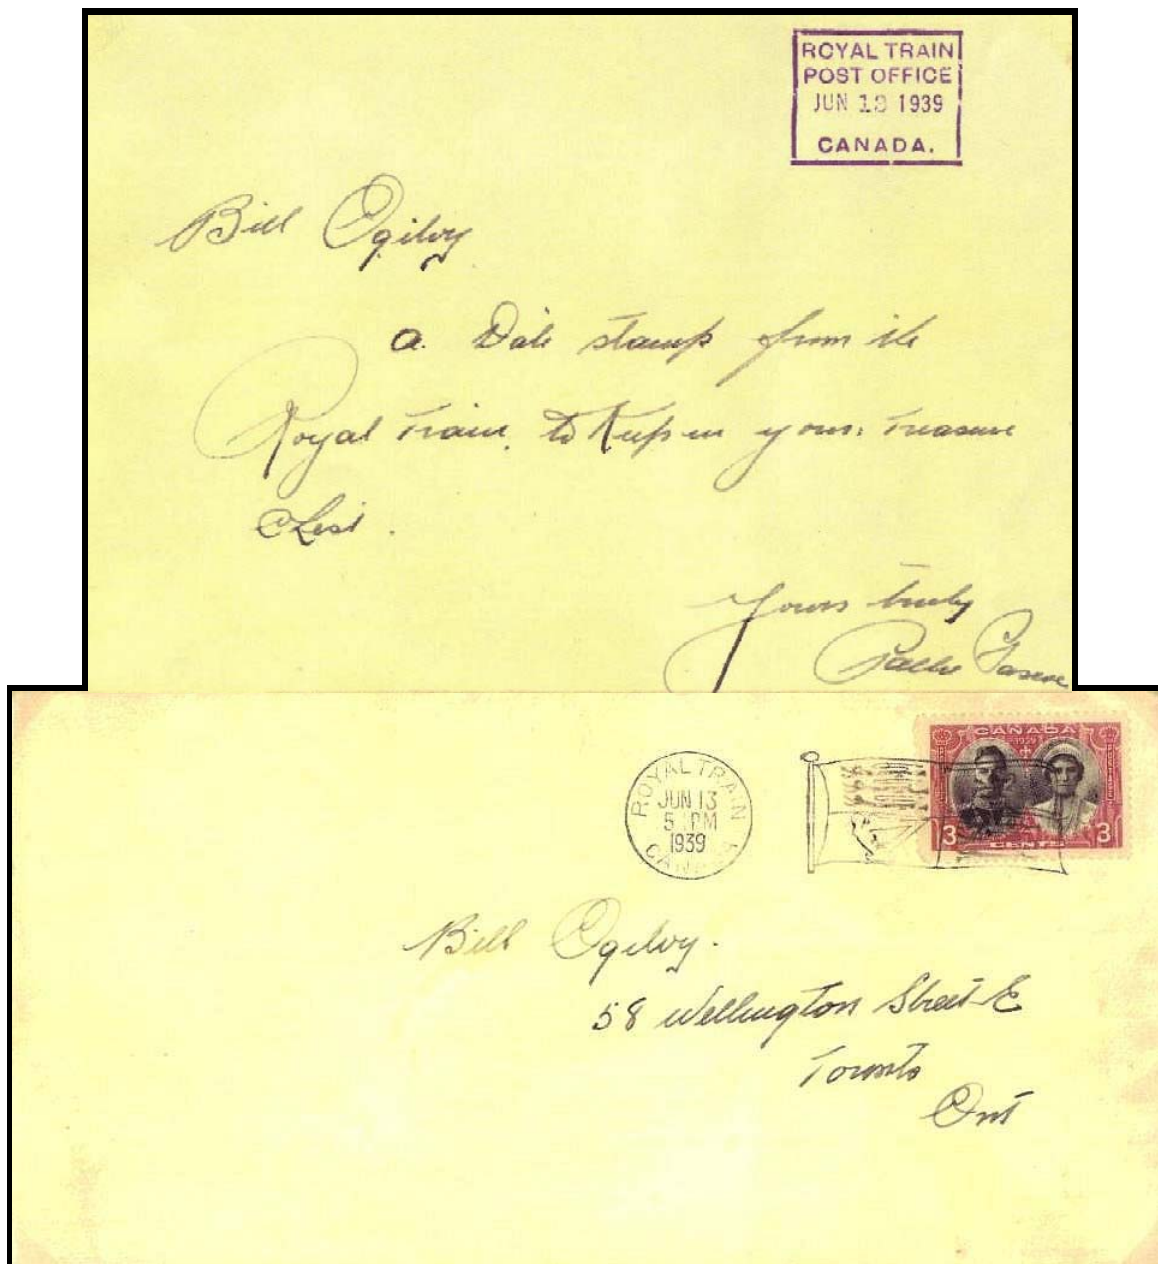 ROYAL TRAIN
POST OFFICE
JUN 13 1939
CANADA.
Bill Ogilvy
a. Date stamp from the
Royal Train, to Keep in your Treasure
Chest.
Yours truly
ROYAL TRAIN
JUN 13
5 PM
1939
CANADA
CANADA
1939
3 3
CENTS
Bill Ogilvy.
58 Wellington Street E
Toronto
Ont